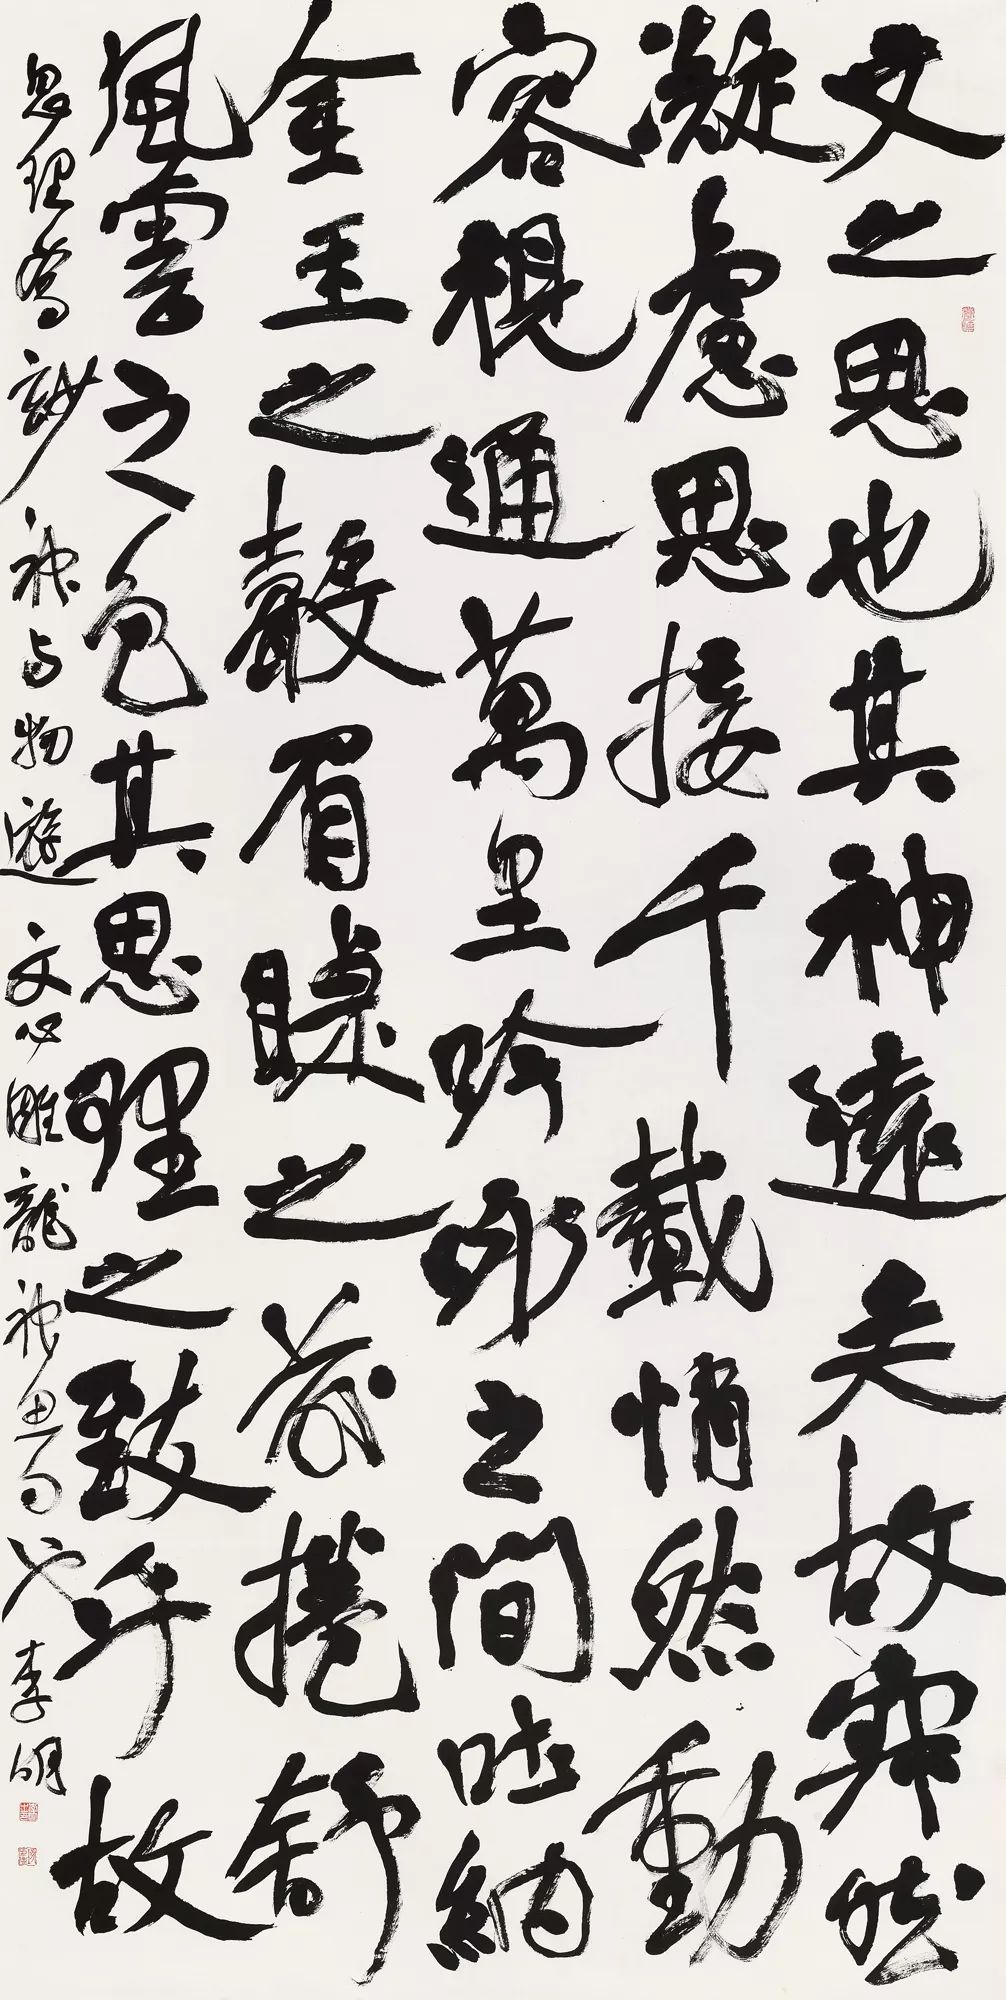 文之思也其神遠矣故寂然
凝慮思接千載悄然動
容視通萬里吟咏之間吐納
金玉之聲眉睫之前捲舒
風雲之色其思理之致乎故
思理為妙神与物遊文心雕龍神思句也李明